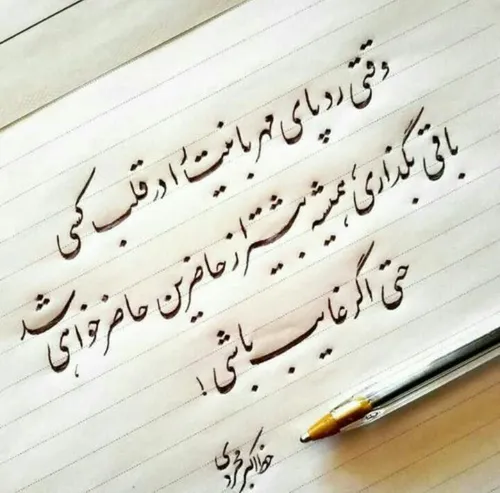 وقتی ردپای مهربانیت را در قلب کسی
باقی بگذاری، همیشه بیشتر از حاضرین حاضر خواهی شد
حتی اگر غایب باشی!
خط اکبر